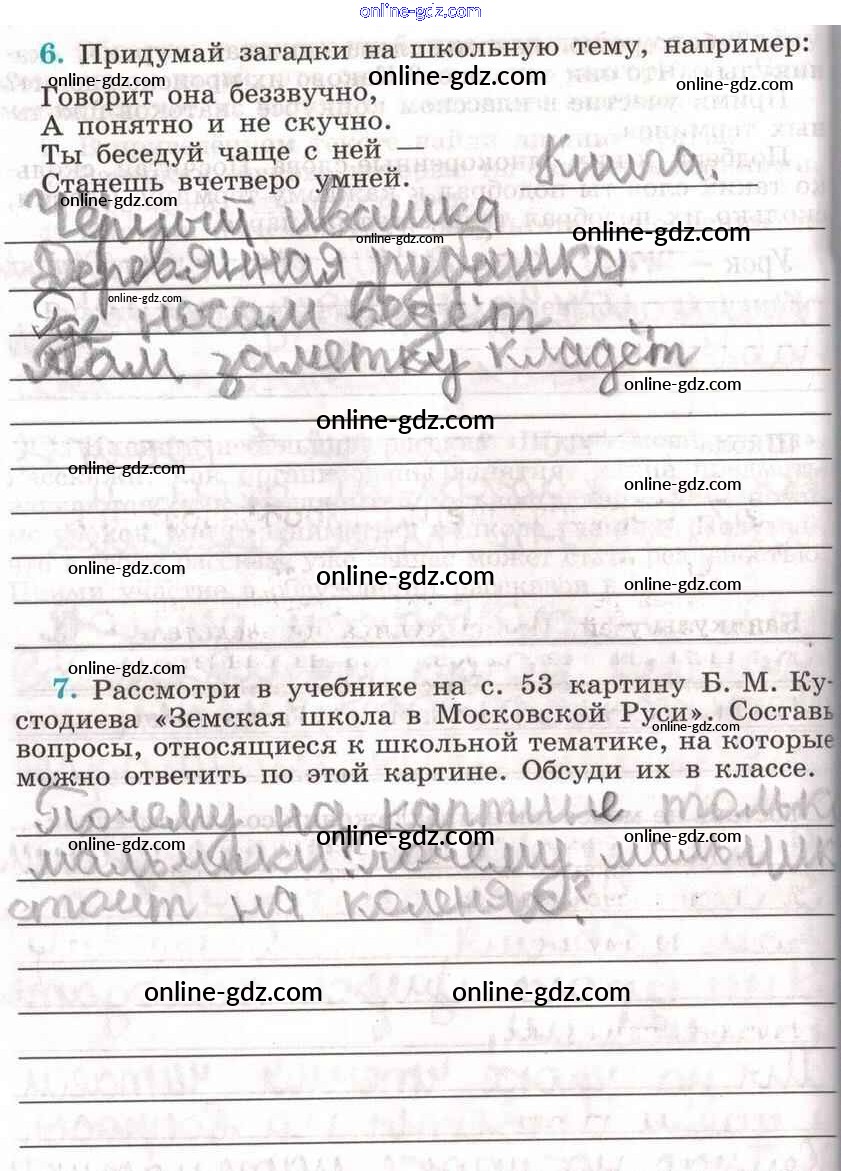 online-gdz.com
6. Придумай загадки на школьную тему, например:
online-gdz.com online-gdz.com online-gdz.com
Говорит она беззвучно,
А понятно и не скучно.
Ты беседуй чаще с ней —
Станешь вчетверо умней. Книга.
online-gdz.com
Чёрный Ивашка
online-gdz.com online-gdz.com
Деревянная рубашка
online-gdz.com
Где носом ведёт
Там заметку кладёт
online-gdz.com
online-gdz.com
online-gdz.com
online-gdz.com
online-gdz.com online-gdz.com
online-gdz.com
7. Рассмотри в учебнике на с. 53 картину Б. М. Ку-
стодиева «Земская школа в Московской Руси». Составь
online-gdz.com
вопросы, относящиеся к школьной тематике, на которые
можно ответить по этой картине. Обсуди их в классе.
Почему на картине
online-gdz.com online-gdz.com online-gdz.com
мальчики? почему мальчик
стоит на коленях?
online-gdz.com online-gdz.com